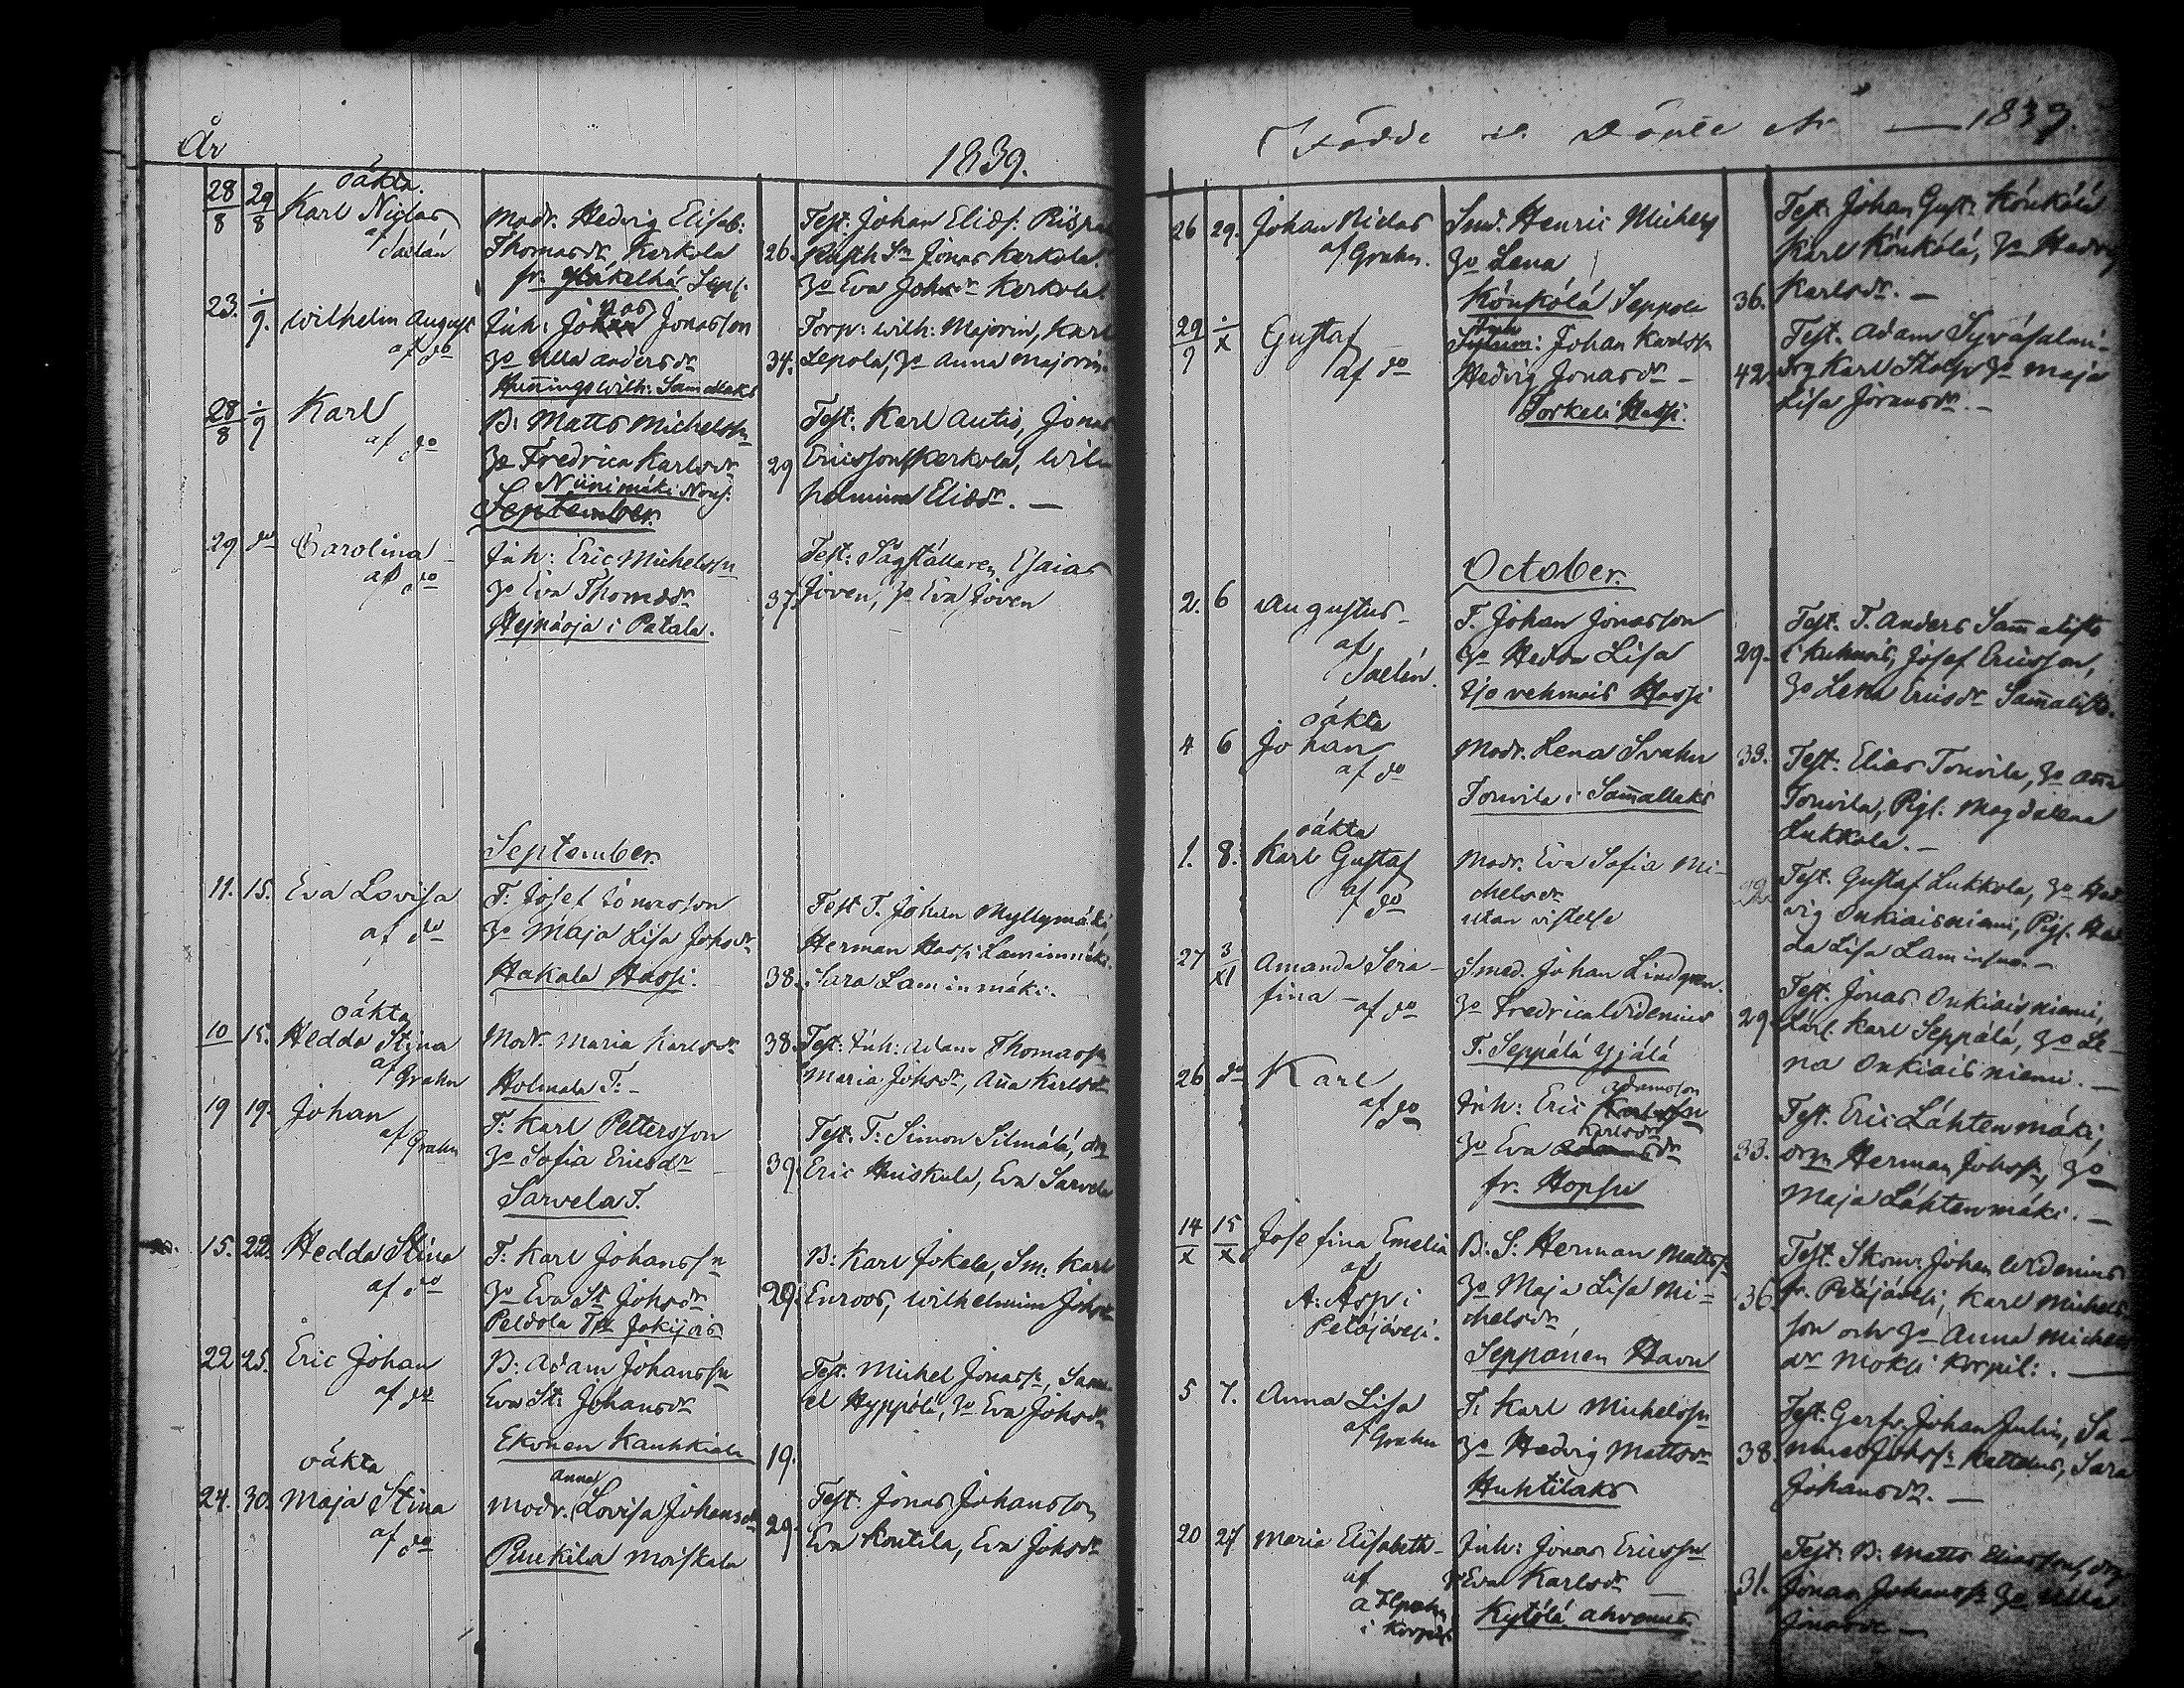 År 1839.
oäkta.
28/8 29/8 Karl Niclas
af
Saelán
Modr. Hedvig Elisab:
Thomasdr Kerkola 26.
fr. Sepp.
Test: Johan Eliæs.
Jonas Kerkola.
go Eva Johsdr Kerkola.
23. 1/9. Wilhelm August
af do
Inh: Jonas Jonasson
go Ulla Andersdr 34.
Wilh: Sammallaks
Torp: Wilh: Majorin, Karl
Lepola, go Anna Majorin.
28/8 1/9 Karl
af do
B: Matts Michelssn
go Fredrica Karlsdr 29
Niinimäki
September.
Test: Karl Autio, Jonas
Ericsson Kerkola, Wil
helmina Eliædr. —
29 do Carolina
af do
Inh: Eric Michelssn
go Eva Thomædr 37.
Hejnäoja i Patala.
Test: Sågställaren Esaias
Joven, go Eva Joven
September.
11. 15. Eva Lovisa
af do
T: Josef Jonasson
go Maja Lisa Johsdr
Hakala Hassi. 38.
Test T. Johan Myllymäki,
Herman Hassi Laminmäki.
Sara Laminmäki.
oäkta
10 15. Hedda Stina
af Grahn
Modr. Maria Karlsdr 38.
Holmala T: -
Test: Inh: Adam Thomassn
Maria Johsdr, Anna Karlsdr
19 19. Johan
af Grahn
T: Karl Pettersson
go Sofia Ericsdr 39
Sarvela T.
Test. T: Simon Silmälä, drg
Eric Huiskala, Eva Sarvela
15. 22. Hedda Stina
af do
T: Karl Johanssn
go Eva St Johsdr 29.
Peldola Jokijois
B: Karl Jokela, Sm: Karl
Enroos, Wilhelmina Johsdr
22 25. Eric Johan
af do
B: Adam Johanssn
Eva St: Johansdr
Ekonen Kauhkiala 19.
Test. Michel Jonassn, Samu
el Hyppölä, go Eva Johsdr
oäkta
24. 30. Maja Stina
af do
anna
Modr. Lovisa Johansdr 29.
Puukila Moiskala
Test. Jonas Johansson
Eva Koutila, Eva Johsdr
Födde o. Döpte År — 1839.
26 29. Johan Niclas
af Grahn.
Smd. Henric Michelss
go Lena
Könkölä Seppola 36.
Test: Johan Gust: Könkölä
Karl Könkölä, go Hedvig
Karlsdr. —
29/9 1/X Gustaf
af do
Inh: Johan Karlssn
Hedvig Jonasdr — 42.
Torkeli Hassi.
Test. Adam Syväsalmi
drg Karl go Maja
Lisa Göransdr. —
October.
2. 6 Augustus
af
Saelén.
T. Johan Jonasson
go Hedda Lisa 29.
vehmais Hassi
Test. T. Anders Sammalisto
i Kuhmois, Josef Ericsson,
go Lena Ericsdr Sammalisto.
oäkta
4 6 Johan
af do
Modr. Lena Svahn 33.
Torvila i Sammallaks
Test. Elias Torvila, go Anna
Torvila, Pig. Magdalena
Lukkola. —
oäkta
1. 8. Karl Gustaf
af do
Modr. Eva Sofia Mi-
chelsdr
utan vistelse
Test. Gustaf Lukkola, go Hed
vig Onkiaisniemi, Pig. Hed
da Lisa
27 3/XI Amanda Sera-
fina — af do
Smed. Johan Lindgren.
go Fredrica Widenius 29.
T. Seppälä Yjälä
Test. Jonas Onkiaisniemi,
Karl Seppälä, go Le-
na Onkiaisniemi. —
26 do Karl
af do
Inh: Eric Adamsson
go Eva Karlsdr 33.
fr. Hopsu
Test. Eric Lähtenmäki,
drg Herman Johssn, go
Maja Lähtenmäki. —
14/X 15/X Josefina Emelia
af
A: Asp i
Petäjävesi.
B: S: Herman Mattss
go Maja Lisa Mi- 36.
chelsdr
Seppänen Haavu
Test. Skom: Johan Widenius
fr. Petäjävesi, Karl Michels
son och go Anna Michels
dr Mokli Korpil: —
5 7. Anna Lisa
af Grahn
T: Karl Michelssn
go Hedvig Mattsdr 38.
Huhtilaks
Test. Garfv. Johan Julin, Sa-
muel Johss Kattelus, Sara
Johansdr. —
20 27 Maria Elisabeth
af
i Korpil.
Inh: Jonas Ericssn
go Eva Karlsdr — 31.
Kytölä Ahvenus.
Test. B. Matts Eliasson, drg
Jonas Johanss go Ulla
Jonasdr —